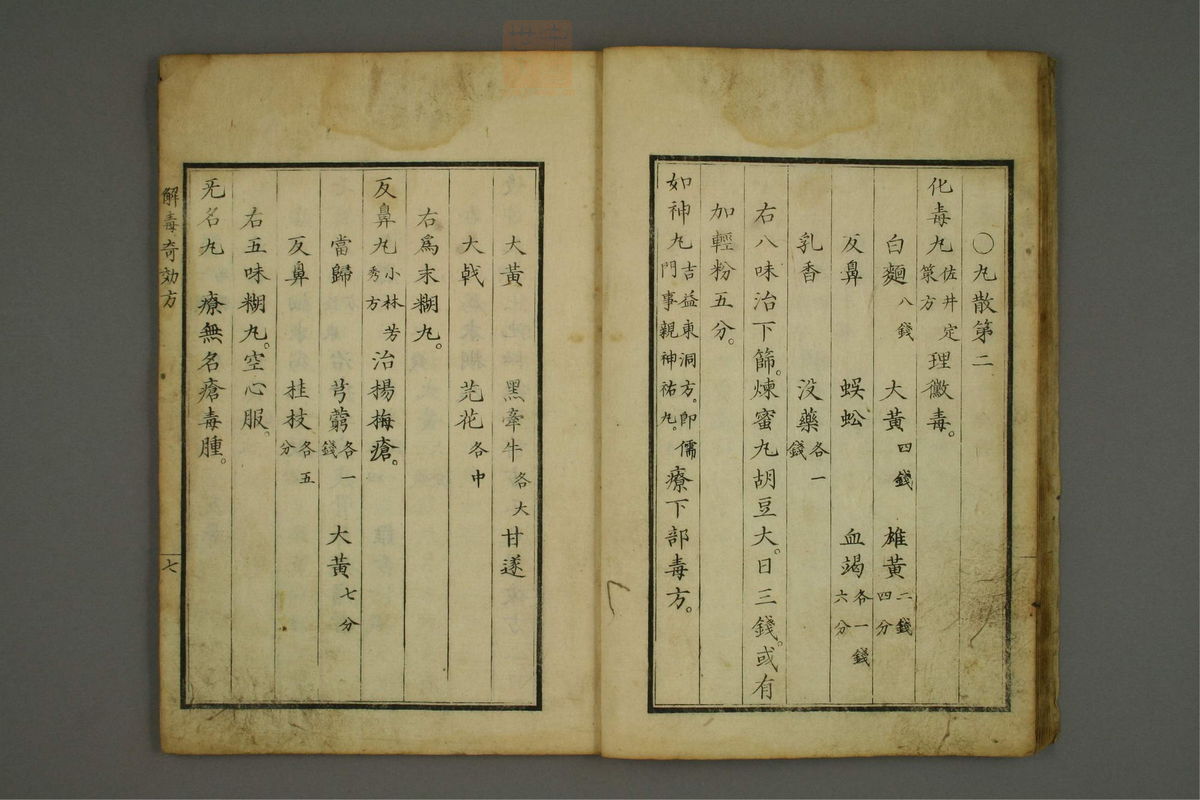 〇丸散第二
化毒丸佐井定策方理黴毒。
白麵八錢 大黃四錢 雄黃二錢四分
反鼻 蜈蚣 血竭各一錢六分
乳香 没藥各一錢
右八味治下篩。煉蜜丸胡豆大。日三錢。或有
加輕粉五分。
如神丸吉益東洞方。卽儒門事親神祐丸。療下部毒方。
大黃 黑牽牛各大 甘遂
大戟 芫花各中
右爲末糊丸。
反鼻丸小林芳秀方治揚梅瘡。
當歸 芎藭各一錢 大黃七分
反鼻 桂技各五分
右五味糊丸。空心服。
无名丸 療無名瘡毒腫。
解毒奇効方
七